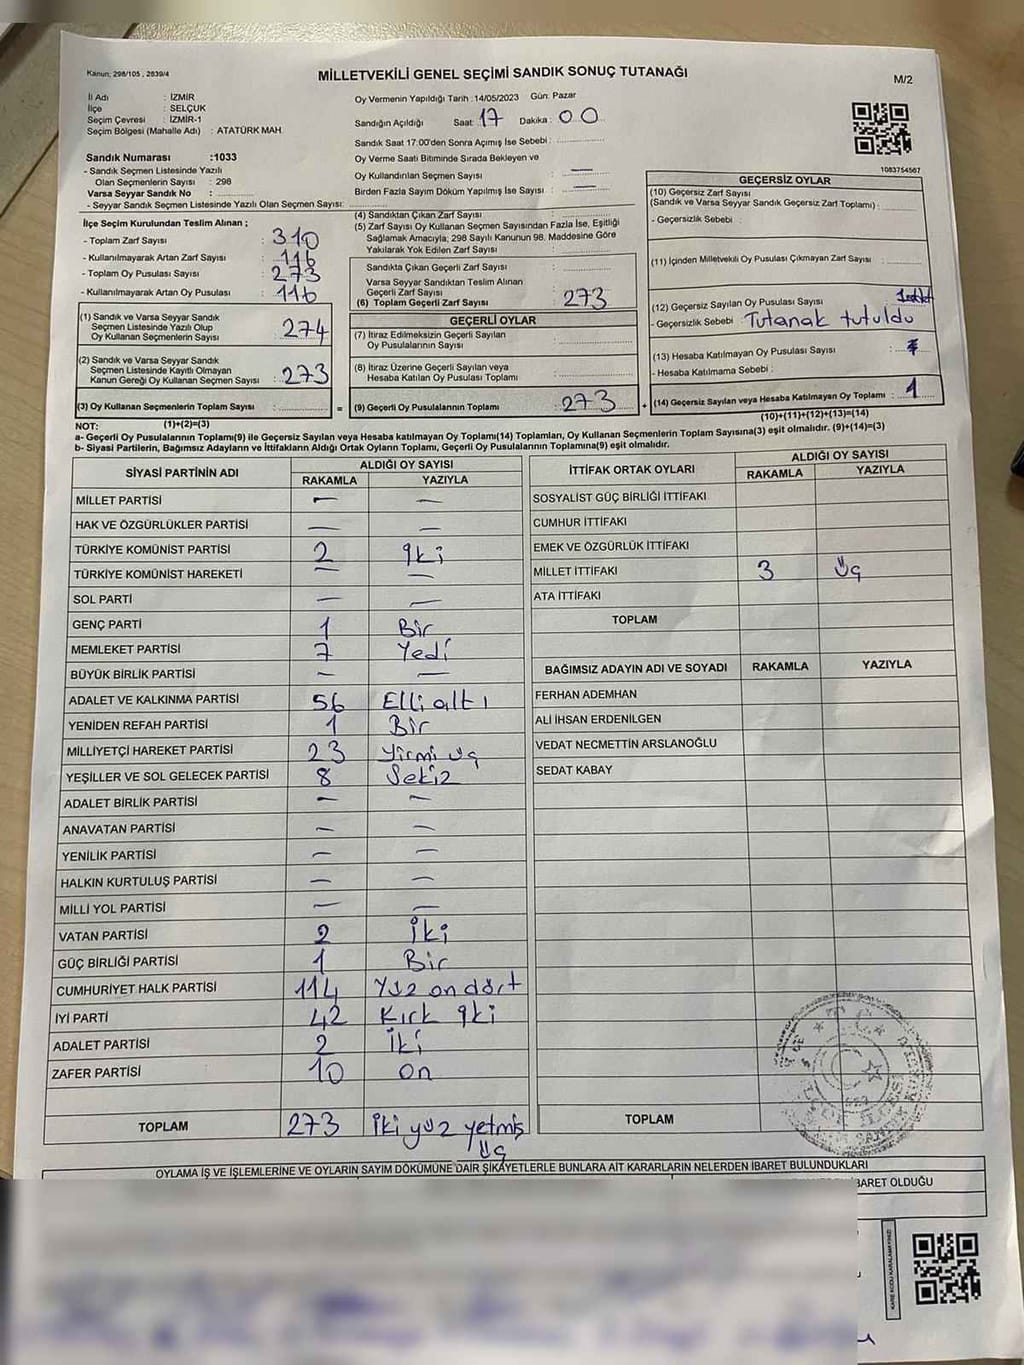 Kanun: 298/105 , 2839/4
MİLLETVEKİLİ GENEL SEÇİMİ SANDIK SONUÇ TUTANAĞI
M/2
İl Adı : İZMİR
İlçe : SELÇUK
Seçim Çevresi : İZMİR-1
Seçim Bölgesi (Mahalle Adı) : ATATÜRK MAH.
Sandık Numarası :1033
- Sandık Seçmen Listesinde Yazılı
Olan Seçmenlerin Sayısı : 298
Varsa Seyyar Sandık No :
- Seyyar Sandık Seçmen Listesinde Yazılı Olan Seçmen Sayısı:
Oy Vermenin Yapıldığı Tarih :14/05/2023 Gün: Pazar
Sandığın Açıldığı Saat: 17 Dakika : 00
Sandık Saat 17:00'den Sonra Açımış İse Sebebi :
Oy Verme Saati Bitiminde Sırada Bekleyen ve
Oy Kullandırılan Seçmen Sayısı : —
Birden Fazla Sayım Döküm Yapılmış İse Sayısı : —
1083754567
İlçe Seçim Kurulundan Teslim Alınan ;
- Toplam Zarf Sayısı : 310
- Kullanılmayarak Artan Zarf Sayısı : 116
- Toplam Oy Pusulası Sayısı : 273
- Kullanılmayarak Artan Oy Pusulası : 116
(1) Sandık ve Varsa Seyyar Sandık
Seçmen Listesinde Yazılı Olup
Oy Kullanan Seçmenlerin Sayısı : 274
(2) Sandık ve Varsa Seyyar Sandık
Seçmen Listesinde Kayıtlı Olmayan
Kanun Gereği Oy Kullanan Seçmen Sayısı : 273
(3) Oy Kullanan Seçmenlerin Toplam Sayısı :
(4) Sandıktan Çıkan Zarf Sayısı :
(5) Zarf Sayısı Oy Kullanan Seçmen Sayısından Fazla İse, Eşitliği
Sağlamak Amacıyla; 298 Sayılı Kanunun 98. Maddesine Göre
Yakılarak Yok Edilen Zarf Sayısı :
Sandıkta Çıkan Geçerli Zarf Sayısı :
Varsa Seyyar Sandıktan Teslim Alınan
Geçerli Zarf Sayısı :
(6) Toplam Geçerli Zarf Sayısı : 273
GEÇERLİ OYLAR
(7) İtiraz Edilmeksizin Geçerli Sayılan
Oy Pusulalarının Sayısı :
(8) İtiraz Üzerine Geçerli Sayılan veya
Hesaba Katılan Oy Pusulası Toplamı :
= (9) Geçerli Oy Pusulalarının Toplamı : 273 +
GEÇERSİZ OYLAR
(10) Geçersiz Zarf Sayısı
(Sandık ve Varsa Seyyar Sandık Geçersiz Zarf Toplamı) :
- Geçersizlik Sebebi :
(11) İçinden Milletvekili Oy Pusulası Çıkmayan Zarf Sayısı :
(12) Geçersiz Sayılan Oy Pusulası Sayısı :
- Geçersizlik Sebebi : Tutanak tutuldu
(13) Hesaba Katılmayan Oy Pusulası Sayısı :
- Hesaba Katılmama Sebebi :
(14) Geçersiz Sayılan veya Hesaba Katılmayan Oy Toplamı : 1
NOT: (1)+(2)=(3)
(10)+(11)+(12)+(13)=(14)
a- Geçerli Oy Pusulalarının Toplamı(9) ile Geçersiz Sayılan veya Hesaba katılmayan Oy Toplamı(14) Toplamları, Oy Kullanan Seçmenlerin Toplam Sayısına(3) eşit olmalıdır. (9)+(14)=(3)
b- Siyasi Partilerin, Bağımsız Adayların ve İttifakların Aldığı Ortak Oyların Toplamı, Geçerli Oy Pusulalarının Toplamına(9) eşit olmalıdır.
SİYASİ PARTİNİN ADI ALDIĞI OY SAYISI
RAKAMLA YAZIYLA
MİLLET PARTİSİ — —
HAK VE ÖZGÜRLÜKLER PARTİSİ — —
TÜRKİYE KOMÜNİST PARTİSİ 2 iki
TÜRKİYE KOMÜNİST HAREKETİ — —
SOL PARTİ — —
GENÇ PARTİ 1 Bir
MEMLEKET PARTİSİ 7 Yedi
BÜYÜK BİRLİK PARTİSİ — —
ADALET VE KALKINMA PARTİSİ 56 Elli altı
YENİDEN REFAH PARTİSİ 1 Bir
MİLLİYETÇİ HAREKET PARTİSİ 23 Yirmi üç
YEŞİLLER VE SOL GELECEK PARTİSİ 8 Sekiz
ADALET BİRLİK PARTİSİ — —
ANAVATAN PARTİSİ — —
YENİLİK PARTİSİ — —
HALKIN KURTULUŞ PARTİSİ — —
MİLLİ YOL PARTİSİ — —
VATAN PARTİSİ 2 İki
GÜÇ BİRLİĞİ PARTİSİ 1 Bir
CUMHURİYET HALK PARTİSİ 114 Yüz on dört
İYİ PARTİ 42 Kırk iki
ADALET PARTİSİ 2 İki
ZAFER PARTİSİ 10 on
TOPLAM 273 İki yüz yetmiş
üç
İTTİFAK ORTAK OYLARI ALDIĞI OY SAYISI
RAKAMLA YAZIYLA
SOSYALİST GÜÇ BİRLİĞİ İTTİFAKI
CUMHUR İTTİFAKI
EMEK VE ÖZGÜRLÜK İTTİFAKI
MİLLET İTTİFAKI 3 Üç
ATA İTTİFAKI
TOPLAM
BAĞIMSIZ ADAYIN ADI VE SOYADI RAKAMLA YAZIYLA
FERHAN ADEMHAN
ALİ İHSAN ERDENİLGEN
VEDAT NECMETTİN ARSLANOĞLU
SEDAT KABAY
TOPLAM
OYLAMA İŞ VE İŞLEMLERİNE VE OYLARIN SAYIM DÖKÜMÜNE DAİR ŞİKAYETLERLE BUNLARA AİT KARARLARIN NELERDEN İBARET BULUNDUKLARI
BARET OLDUĞU